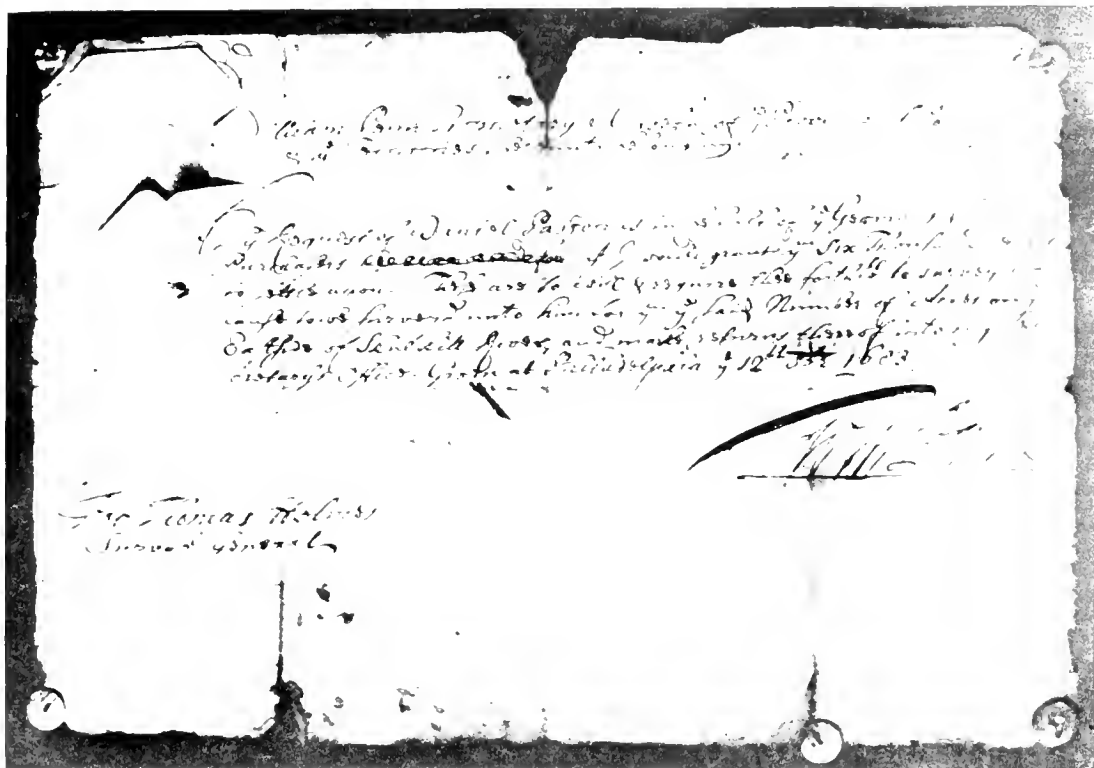 William Penn Proprietary & Govern^r of
& y^e Territories thereunto belonging
At y^e Request of Daniel Pastorius in behalf of y^e German
Purchasers y^t I would grant y^m Six Thous
to settle upon These are to will & require thee forthwth to survey or
cause to be surveyed unto him for y^m y^e said Number of Acres on
East side of Skulkill River, and make returns thereof into my
cretary's Office. Given at Philadelphia y^e 12^th 1683
For Thomas Holmes
Survey^r General